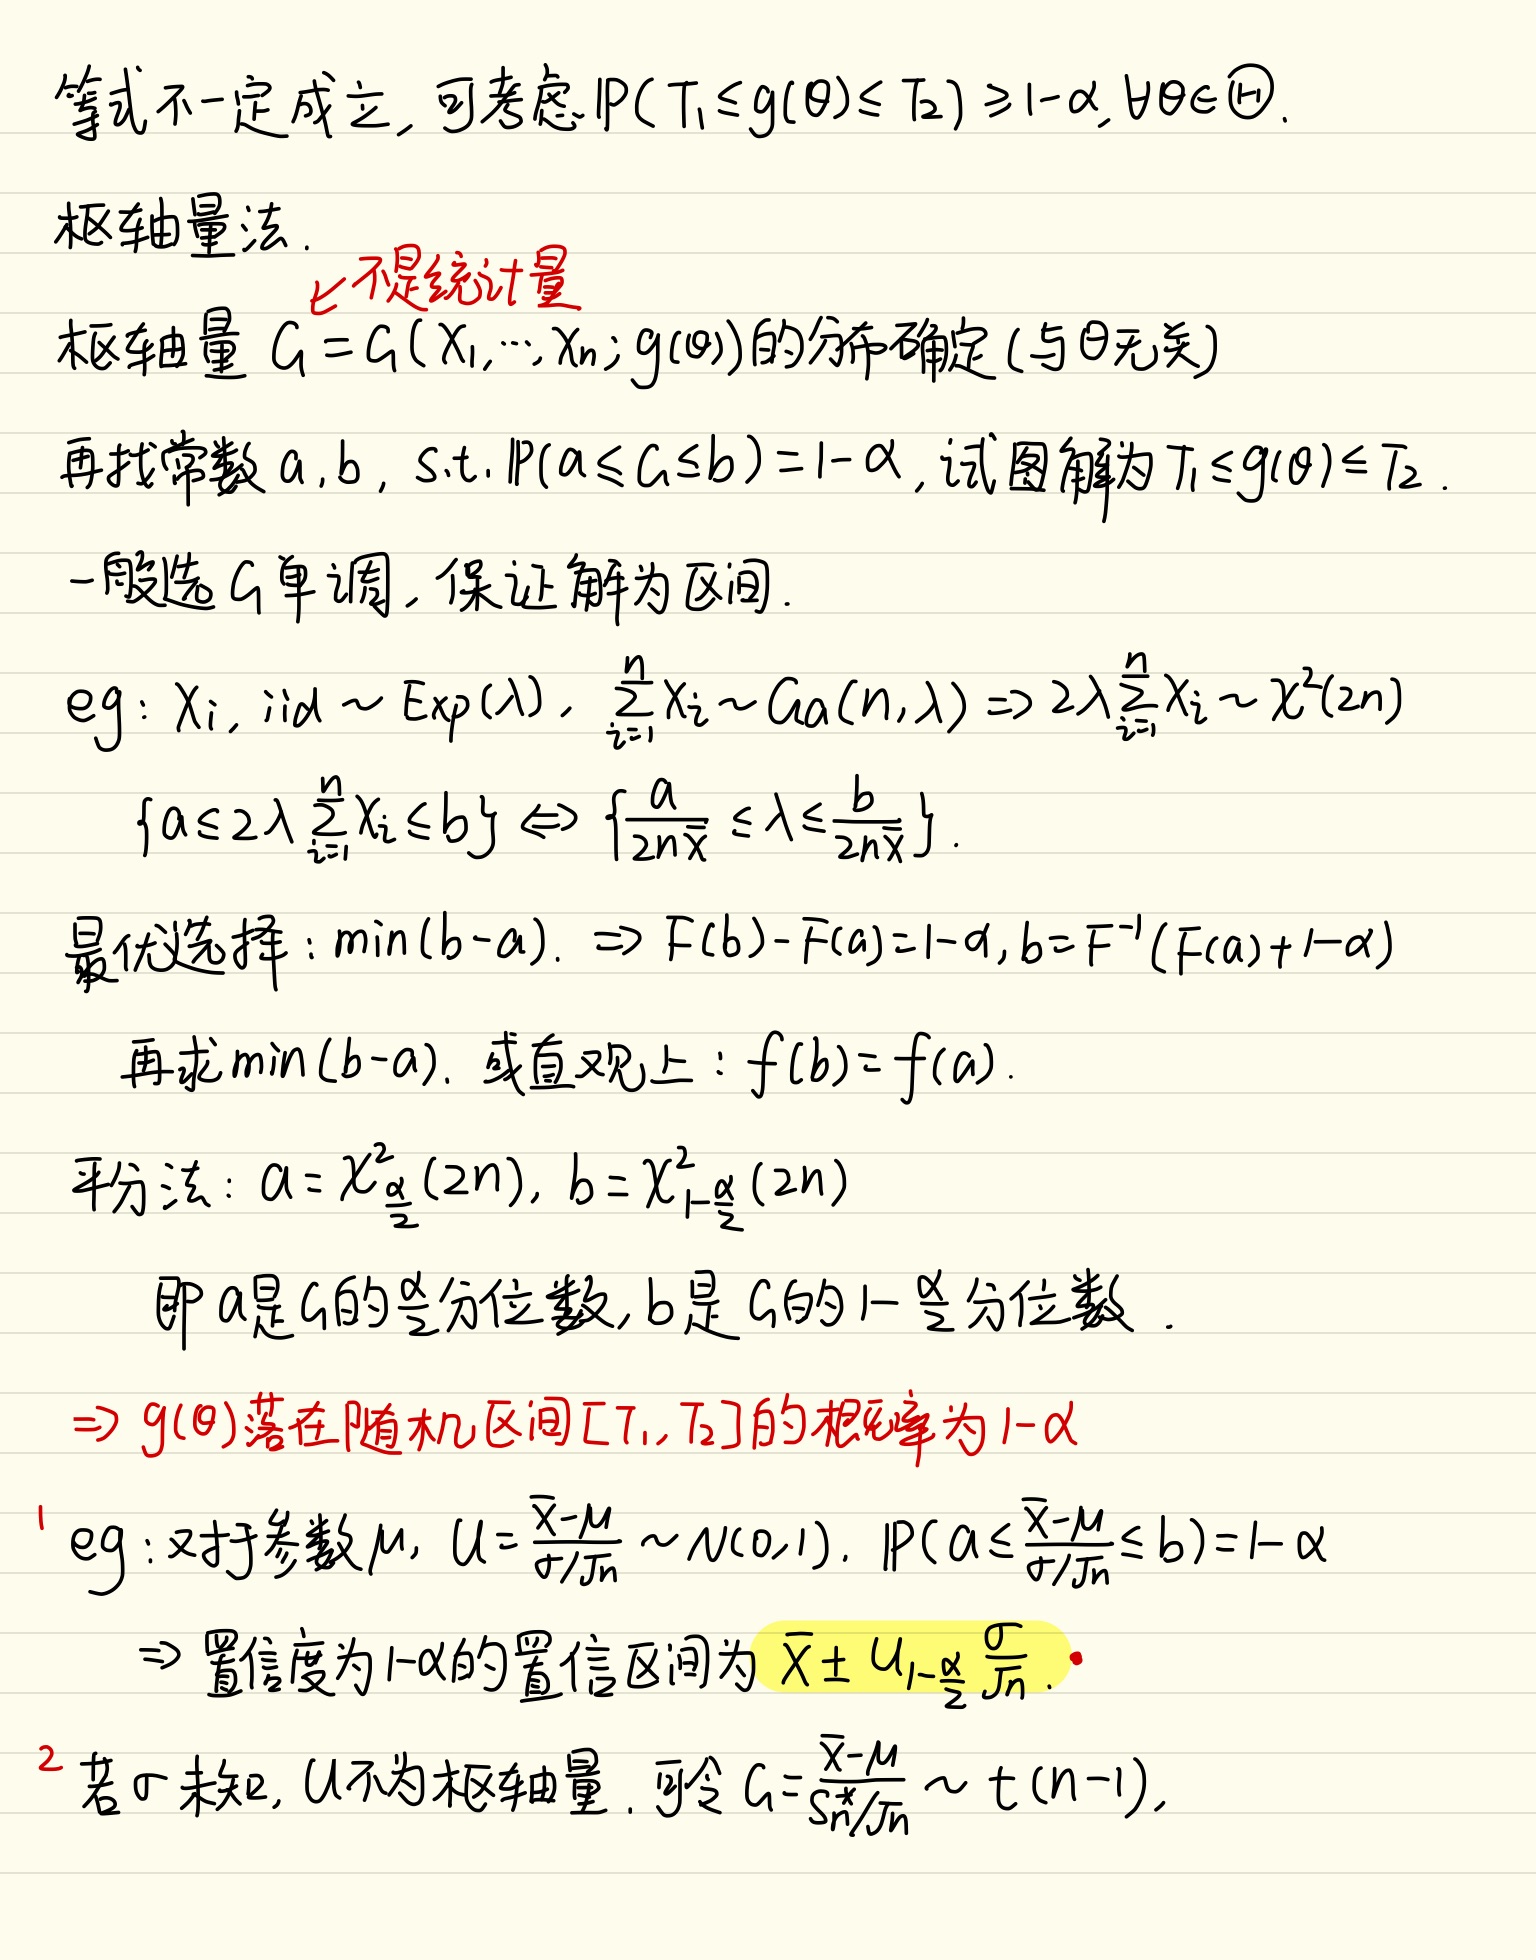 等式不一定成立, 可考虑 ℙ(T₁ ≤ g(θ) ≤ T₂) ≥ 1-α, ∀θ∈Ⓗ.
枢轴量法.
↙不是统计量
枢轴量 G = G(X₁, ⋯, Xₙ; g(θ)) 的分布确定 (与θ无关)
再找常数 a, b, s.t. ℙ(a ≤ G ≤ b) = 1-α, 试图解为 T₁ ≤ g(θ) ≤ T₂.
一般选 G 单调, 保证解为区间.
eg: Xᵢ, iid ~ Exp(λ), \sum_{i=1}^{n} Xᵢ ~ Ga(n, λ) ⇒ 2λ \sum_{i=1}^{n} Xᵢ ~ χ²(2n)
{a ≤ 2λ \sum_{i=1}^{n} Xᵢ ≤ b} ⇔ {\frac{a}{2n\overline{X}} ≤ λ ≤ \frac{b}{2n\overline{X}}}.
最优选择: min(b-a). ⇒ F(b) - F(a) = 1-α, b = F⁻¹(F(a) + 1-α)
再求 min(b-a). 或直观上: f(b) = f(a).
平分法: a = χ²_{\frac{α}{2}}(2n), b = χ²_{1-\frac{α}{2}}(2n)
即 a是G的\frac{α}{2}分位数, b是G的1-\frac{α}{2}分位数.
⇒ g(θ)落在随机区间[T₁, T₂]的概率为1-α
1 eg: 对于参数μ, U = \frac{\overline{X}-μ}{σ/\sqrt{n}} ~ N(0,1). ℙ(a ≤ \frac{\overline{X}-μ}{σ/\sqrt{n}} ≤ b) = 1-α
⇒ 置信度为1-α的置信区间为 \overline{X} ± U_{1-\frac{α}{2}} \frac{σ}{\sqrt{n}}.
2 若σ未知, U不为枢轴量. 可令 G = \frac{\overline{X}-μ}{S_n^*/\sqrt{n}} ~ t(n-1),